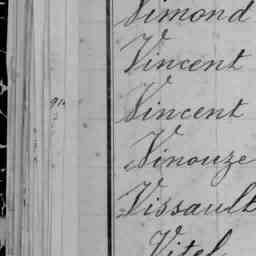 Vimond
Vincent
Vincent
Vinouze
Vissault
Vitel